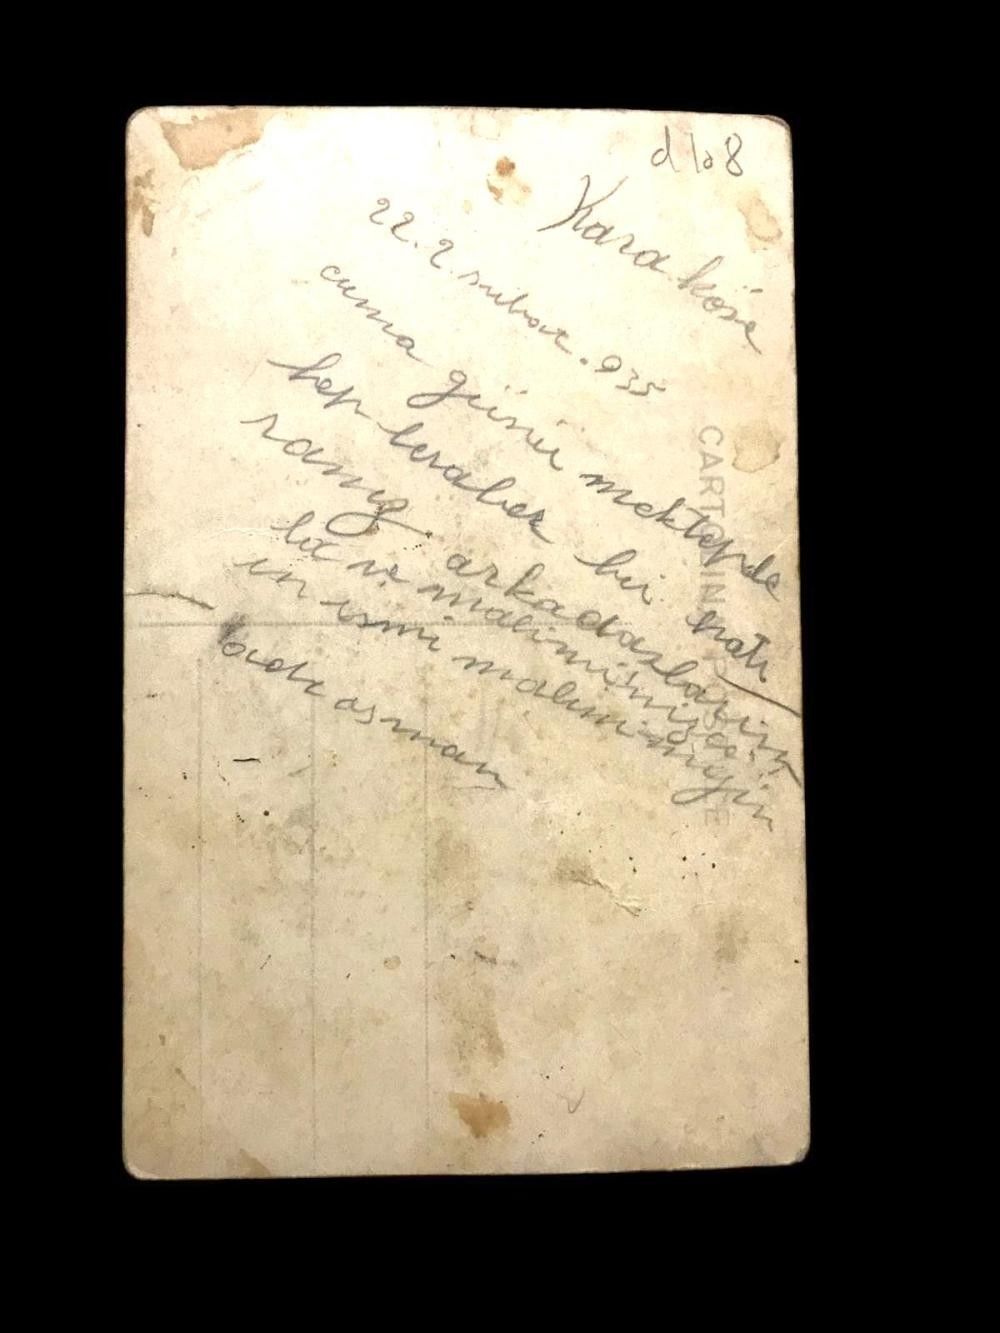 d 108
Kara köse
22.2 subat. 935
cuma günü mektepde
hep beraber bir hatı
ramız. arkadaslarım
la ve malimimizle
in ismi malimimizin
asman
CARTOLINA POSTALE